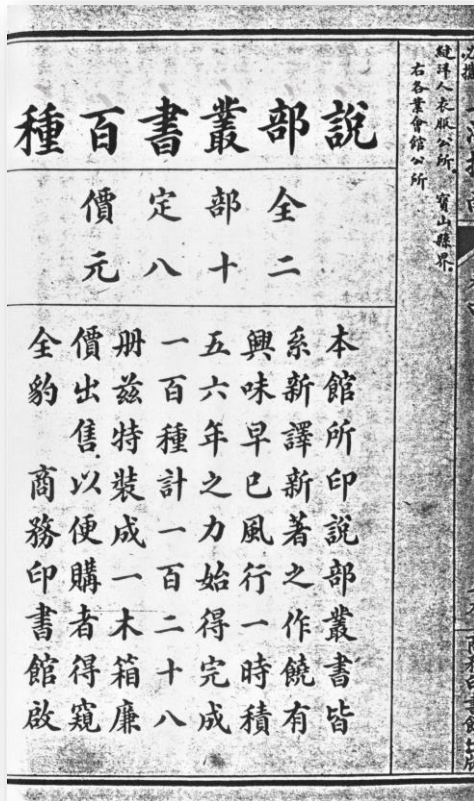 縫洋人衣服公所。寶山縣界。
右各業會館公所
說部叢書百種
全部定價
二十八元
本館所印說部叢書皆
系新譯新著之作饒有
興味早已風行一時積
五六年之力始得完成
一百種計一百二十八
册兹特裝成一木箱廉
價出售以便購者得窺
全豹 商務印書館啟